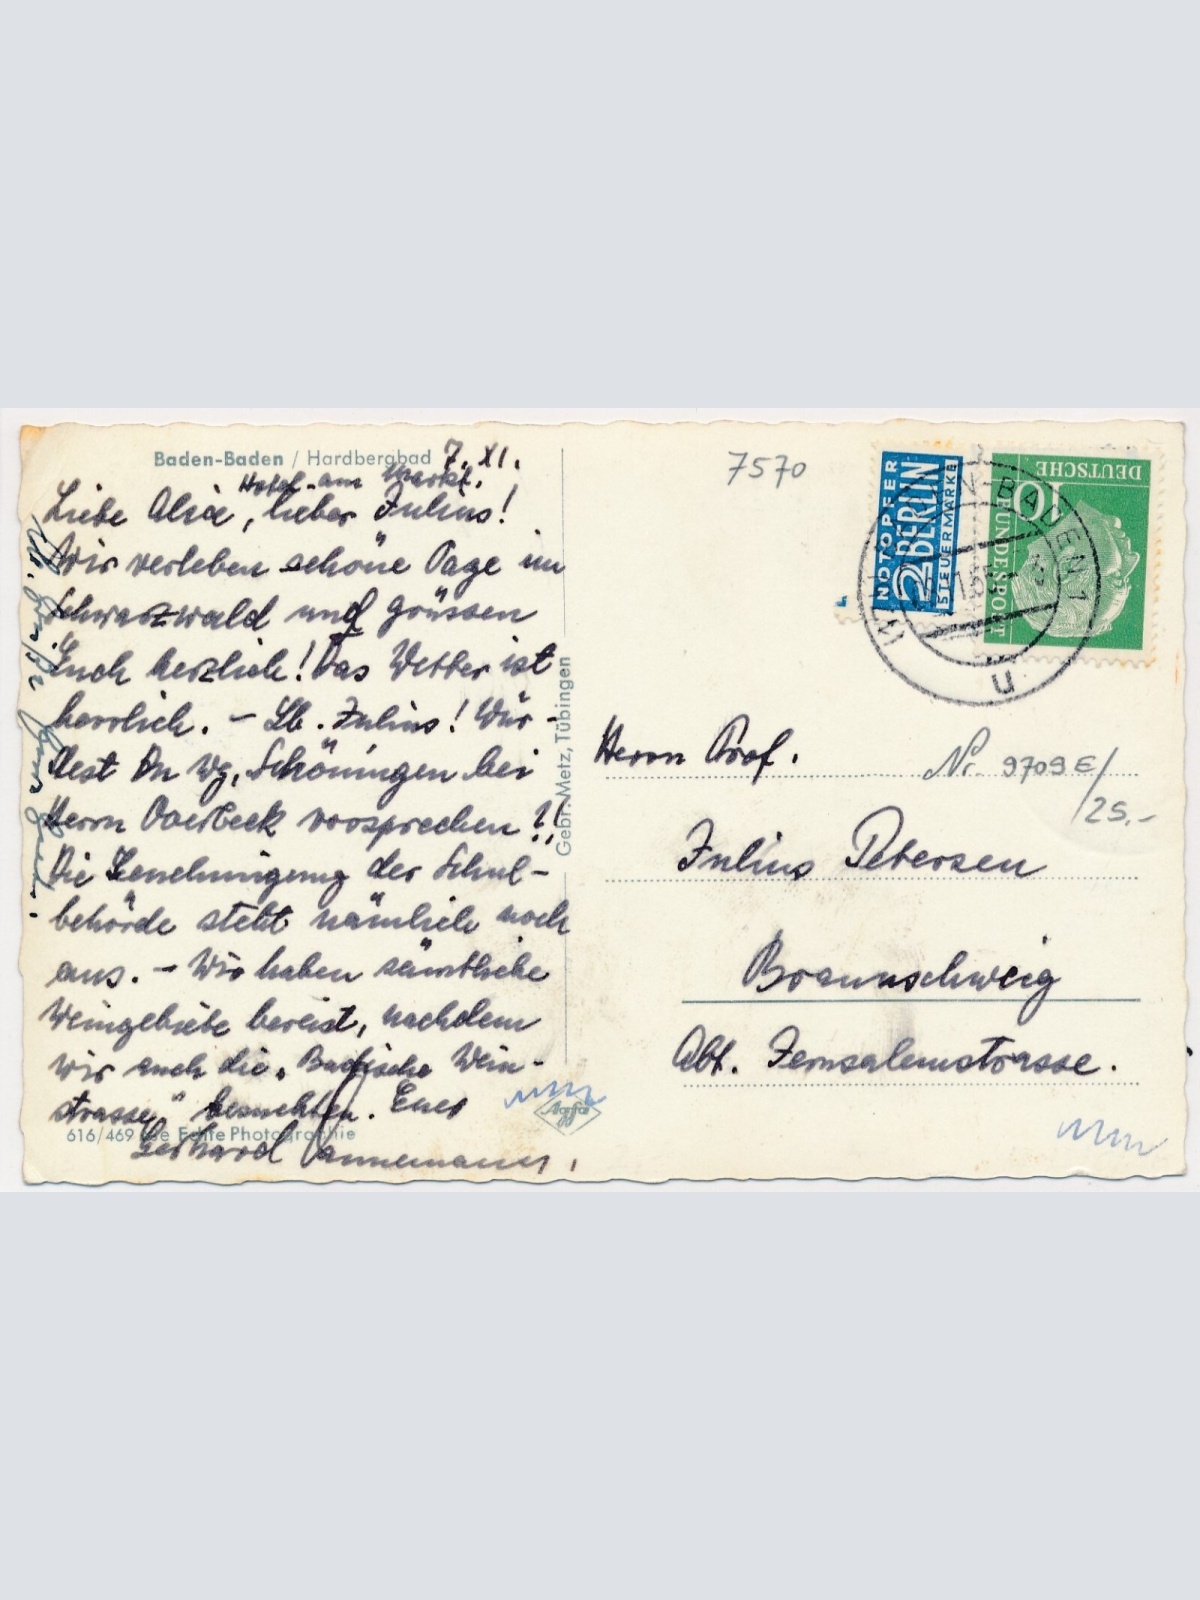 Baden-Baden / Hardbergbad 7. XI.
Hotel am Markt.
Liebe Alice, lieber Julius!
Wir verleben schöne Tage im
Schwarzwald und grüssen
Euch herzlich! Das Wetter ist
herrlich. – Lb. Julius! Wür-
dest Du wg. Schöningen bei
Herrn Overbeck vorsprechen?!
Die Genehmigung der Schul-
behörde steht nämlich noch
aus. – Wir haben sämtliche
Weingebiete bereist, nachdem
wir auch die „Badische Wein-
strasse" besuchten. Euer
Gerhard Pannemann.
616/469 Echte Photographie
Gebr. Metz, Tübingen
Agfa
7570
NOTOPFER
2 BERLIN
STEUERMARKE
DEUTSCHE
BUNDESPOST
10
BADEN-BADEN 1
u
Herrn Prof.
Nr. 9709 E/
25.-
Julius Petersen
Braunschweig
Abt. Jerusalemstrasse.